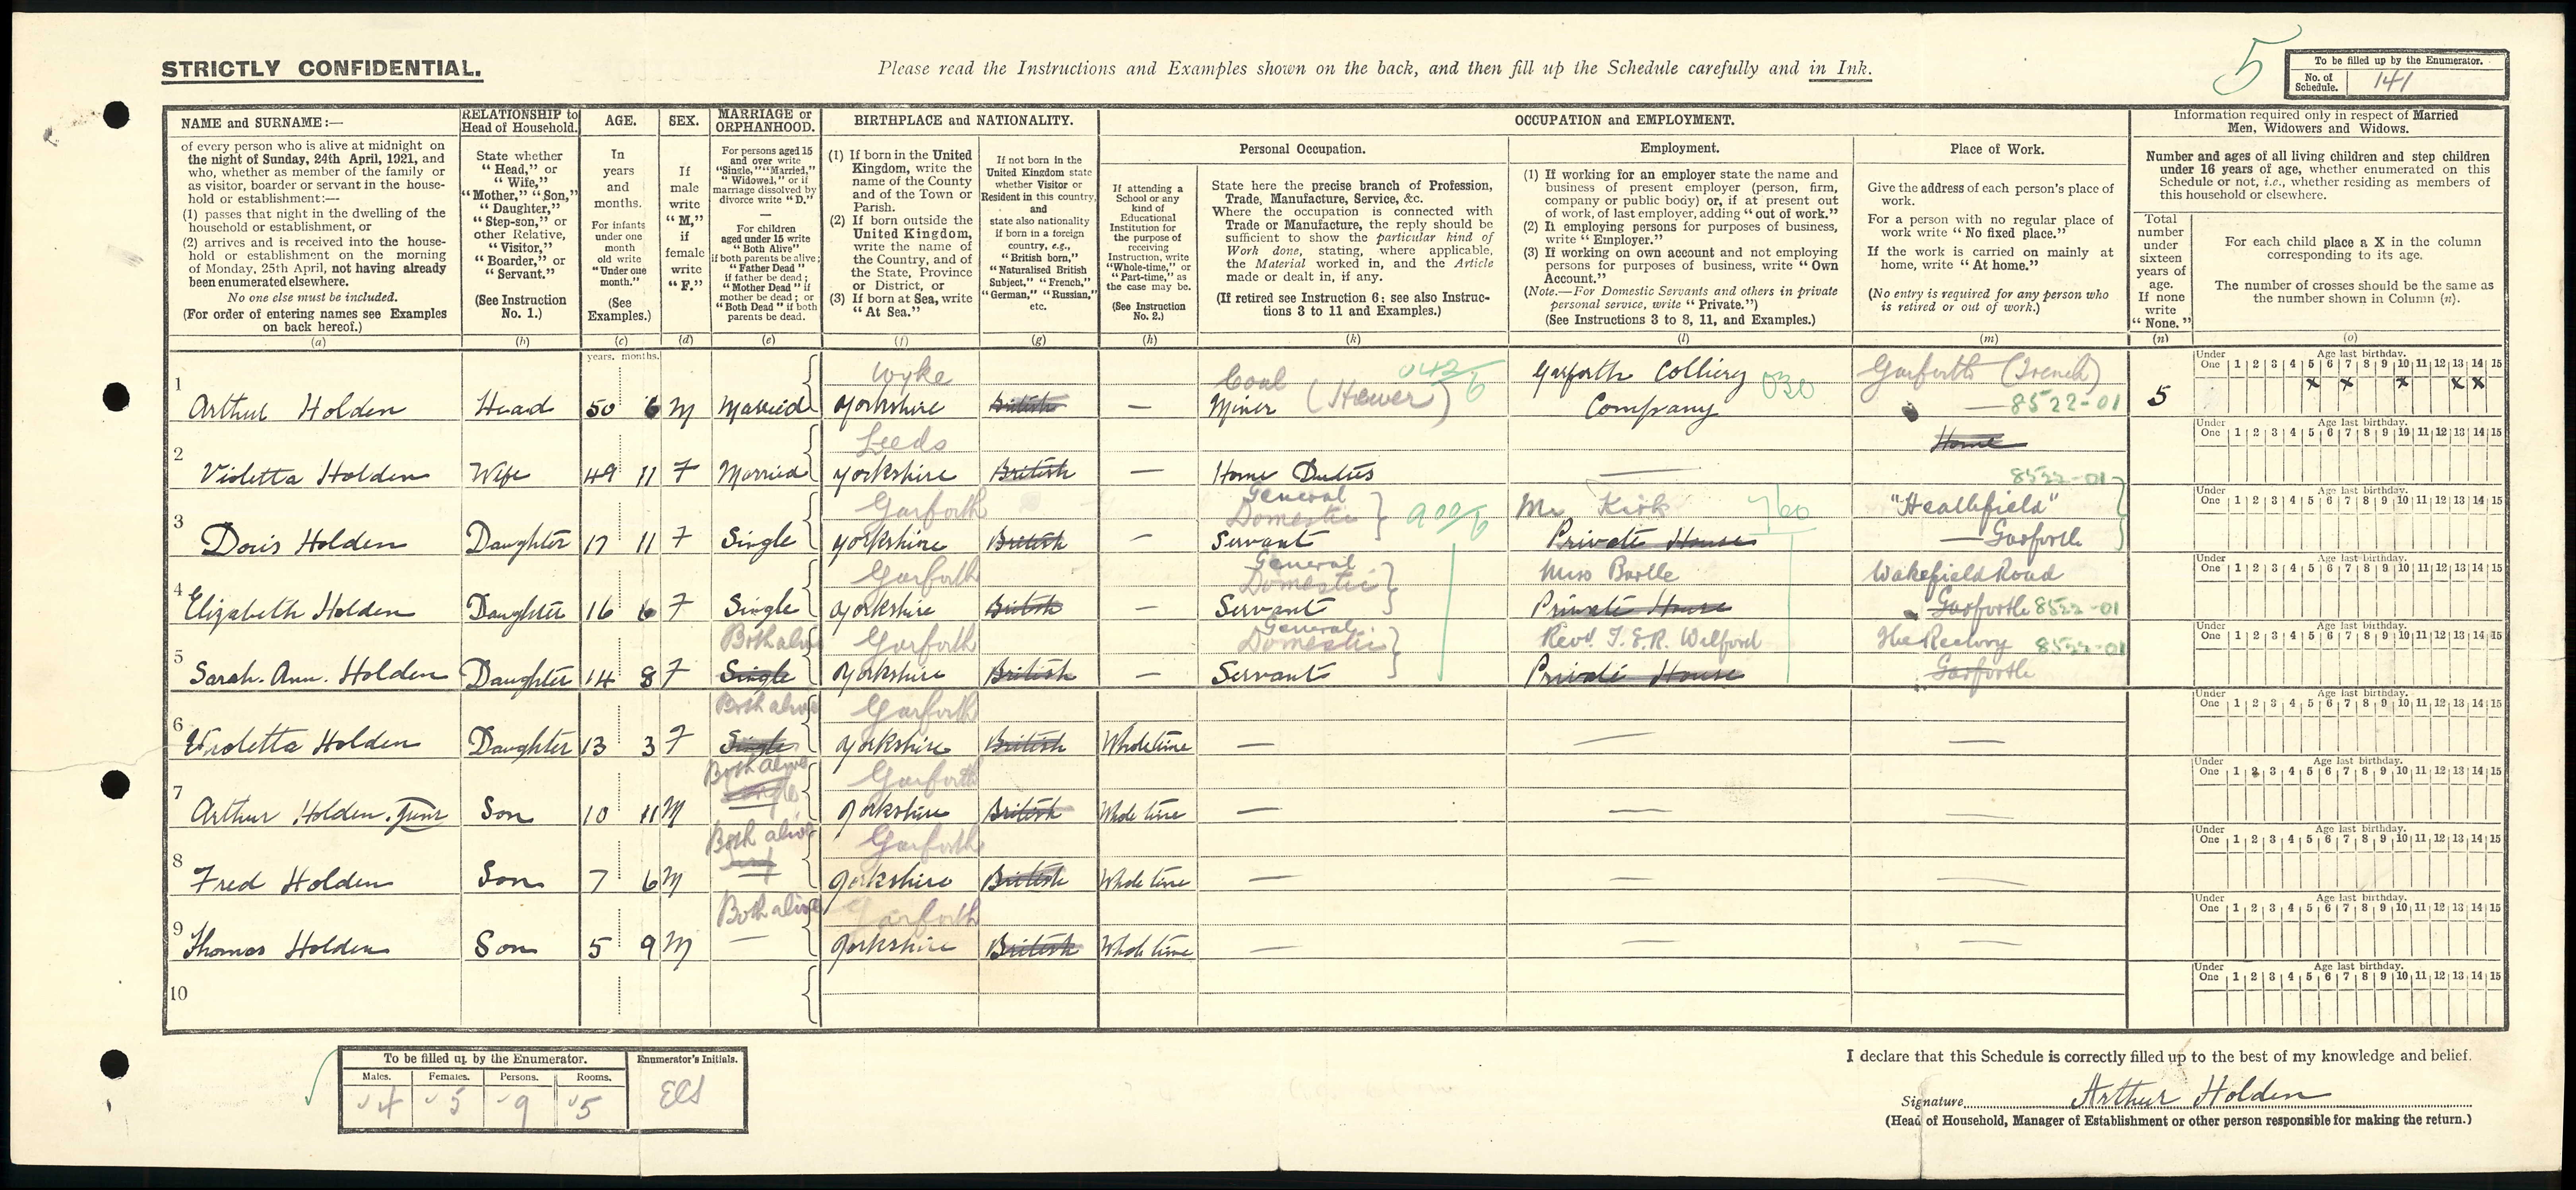 STRICTLY CONFIDENTIAL.
Please read the Instructions and Examples shown on the back, and then fill up the Schedule carefully and in Ink.
5
To be filled up by the Enumerator.
No. of Schedule. 141
NAME and SURNAME:—
of every person who is alive at midnight on
the night of Sunday, 24th April, 1921, and
who, whether as member of the family or
as visitor, boarder or servant in the house-
hold or establishment:—
(1) passes that night in the dwelling of the
household or establishment, or
(2) arrives and is received into the house-
hold or establishment on the morning
of Monday, 25th April, not having already
been enumerated elsewhere.
No one else must be included.
(For order of entering names see Examples
on back hereof.)
(a)
RELATIONSHIP to
Head of Household.
State whether
"Head," or
"Wife,"
"Mother," "Son,"
"Daughter,"
"Step-son," or
other Relative,
"Visitor,"
"Boarder," or
"Servant."
(See Instruction
No. 1.)
(b)
AGE.
In
years
and
months.
For infants
under one
month
old write
"Under one
month."
(See
Examples.)
(c)
SEX.
If
male
write
"M,"
if
female
write
"F."
(d)
MARRIAGE or
ORPHANHOOD.
For persons aged 15
and over write
"Single," "Married,"
"Widowed," or if
marriage dissolved by
divorce write "D."
—
For children
aged under 15 write
"Both Alive"
if both parents be alive;
"Father Dead"
if father be dead;
"Mother Dead" if
mother be dead; or
"Both Dead" if both
parents be dead.
(e)
BIRTHPLACE and NATIONALITY.
(1) If born in the United
Kingdom, write the
name of the County
and of the Town or
Parish.
(2) If born outside the
United Kingdom,
write the name of
the Country, and of
the State, Province
or District, or
(3) If born at Sea, write
"At Sea."
(f)
If not born in the
United Kingdom state
whether Visitor or
Resident in this country,
and
state also nationality
if born in a foreign
country, e.g.,
"British born,"
"Naturalised British
Subject," "French,"
"German," "Russian,"
etc.
(g)
OCCUPATION and EMPLOYMENT.
Personal Occupation.
If attending a
School or any
kind of
Educational
Institution for
the purpose of
receiving
Instruction, write
"Whole-time," or
"Part-time," as
the case may be.
(See Instruction
No. 2.)
(h)
State here the precise branch of Profession,
Trade, Manufacture, Service, &c.
Where the occupation is connected with
Trade or Manufacture, the reply should be
sufficient to show the particular kind of
Work done, stating, where applicable,
the Material worked in, and the Article
made or dealt in, if any.
(If retired see Instruction 6; see also Instruc-
tions 3 to 11 and Examples.)
(k)
Employment.
(1) If working for an employer state the name and
business of present employer (person, firm,
company or public body) or, if at present out
of work, of last employer, adding "out of work."
(2) If employing persons for purposes of business,
write "Employer."
(3) If working on own account and not employing
persons for purposes of business, write "Own
Account."
(Note.—For Domestic Servants and others in private
personal service, write "Private.")
(See Instructions 3 to 8, 11, and Examples.)
(l)
Place of Work.
Give the address of each person's place of
work.
For a person with no regular place of
work write "No fixed place."
If the work is carried on mainly at
home, write "At home."
(No entry is required for any person who
is retired or out of work.)
(m)
Information required only in respect of Married
Men, Widowers and Widows.
Number and ages of all living children and step children
under 16 years of age, whether enumerated on this
Schedule or not, i.e., whether residing as members of
this household or elsewhere.
Total
number
under
sixteen
years of
age.
If none
write
"None."
(n)
For each child place a X in the column
corresponding to its age.
The number of crosses should be the same as
the number shown in Column (n).
(o)
years. months.
Under One Age last birthday. 1 2 3 4 5 6 7 8 9 10 11 12 13 14 15
Wyke Coal 042/6 Garforth Colliery 030 Garforth (Trench)
1 Arthur Holden Head 50 6 M Married Yorkshire British — Miner (Hewer) Company — 8522-01 5 x x x x x
Under One Age last birthday. 1 2 3 4 5 6 7 8 9 10 11 12 13 14 15
Leeds Home
2 Violetta Holden Wife 49 11 F Married Yorkshire British — Home Duties — 8522-01
Under One Age last birthday. 1 2 3 4 5 6 7 8 9 10 11 12 13 14 15
Garforth General Domestic 900/6 Mr Kirk 760 "Heathfield"
3 Doris Holden Daughter 17 11 F Single Yorkshire British — Servant Private House — Garforth
Under One Age last birthday. 1 2 3 4 5 6 7 8 9 10 11 12 13 14 15
Garforth General Domestic Miss Bartle Wakefield Road
4 Elizabeth Holden Daughter 16 6 F Single Yorkshire British — Servant Private House Garforth 8522-01
Under One Age last birthday. 1 2 3 4 5 6 7 8 9 10 11 12 13 14 15
Both alive Garforth General Domestic Revd. T.E.R. Wilford The Rectory 8522-01
5 Sarah. Ann. Holden Daughter 14 8 F Single Yorkshire British — Servant Private House Garforth
Under One Age last birthday. 1 2 3 4 5 6 7 8 9 10 11 12 13 14 15
Both alive Garforth
6 Violetta Holden Daughter 13 3 F Single Yorkshire British Whole time — — —
Under One Age last birthday. 1 2 3 4 5 6 7 8 9 10 11 12 13 14 15
Both alive Garforth
7 Arthur Holden. Junr Son 10 11 M Single Yorkshire British Whole time — — —
Under One Age last birthday. 1 2 3 4 5 6 7 8 9 10 11 12 13 14 15
Both alive Garforth
8 Fred Holden Son 7 6 M Yorkshire British Whole time — — —
Under One Age last birthday. 1 2 3 4 5 6 7 8 9 10 11 12 13 14 15
Both alive Garforth
9 Thomas Holden Son 5 9 M — Yorkshire British Whole time — — —
Under One Age last birthday. 1 2 3 4 5 6 7 8 9 10 11 12 13 14 15
10
To be filled up by the Enumerator.
Enumerator's Initials.
Males. Females. Persons. Rooms.
4 5 9 5 ECS
I declare that this Schedule is correctly filled up to the best of my knowledge and belief.
Signature Arthur Holden
(Head of Household, Manager of Establishment or other person responsible for making the return.)